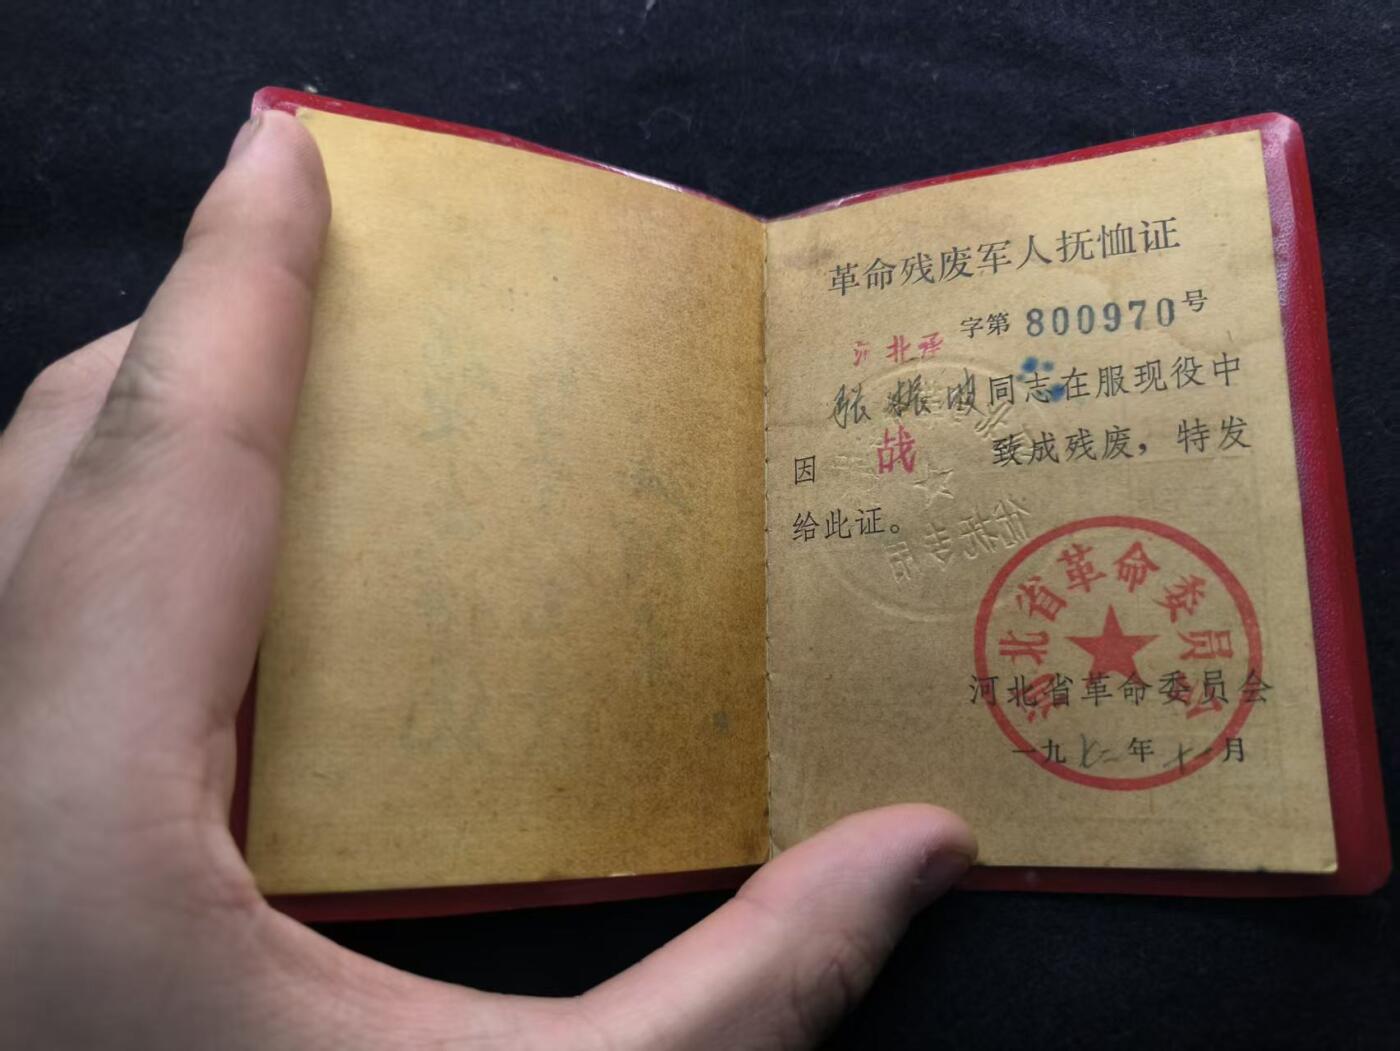 革命残废军人抚恤证
字第 800970 号
河北承
张振波同志在服现役中
因 战 致成残废，特发
给此证。
河北省革命委员会
河北省革命委员会
一九七二年十一月